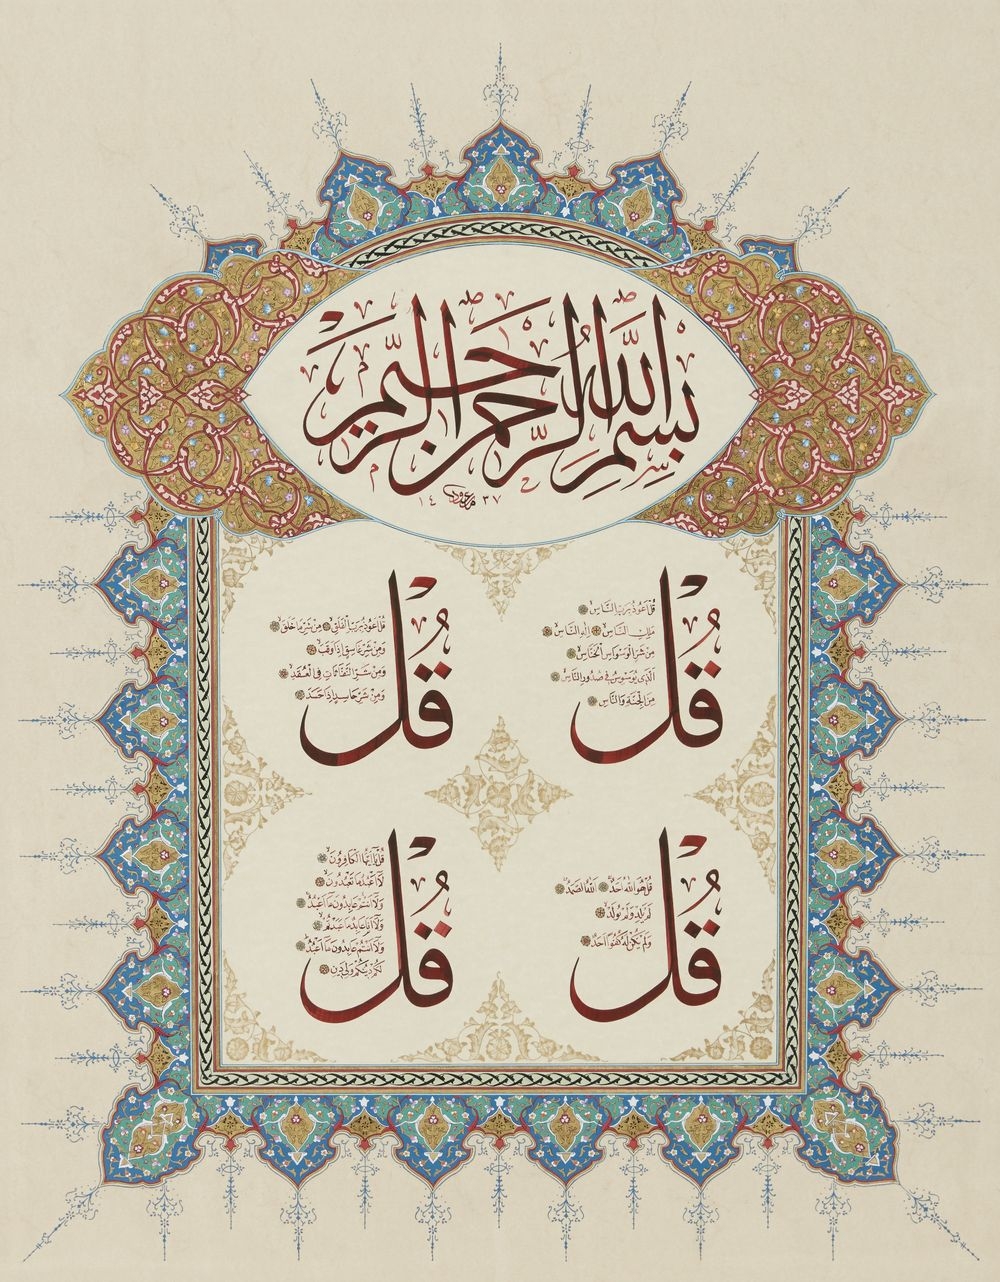 بِسْمِ اللهِ الرَّحْمٰنِ الرَّحِيْمِ
١٤٣٧
قُلْ
قُلْ اَعُوْذُ بِرَبِّ النَّاسِ
مَلِكِ النَّاسِ اِلٰهِ النَّاسِ
مِنْ شَرِّ الْوَسْوَاسِ الْخَنَّاسِ
الَّذِىْ يُوَسْوِسُ فِىْ صُدُوْرِ النَّاسِ
مِنَ الْجِنَّةِ وَالنَّاسِ
قُلْ
قُلْ اَعُوْذُ بِرَبِّ الْفَلَقِ مِنْ شَرِّ مَا خَلَقَ
وَمِنْ شَرِّ غَاسِقٍ اِذَا وَقَبَ
وَمِنْ شَرِّ النَّفّٰثٰتِ فِى الْعُقَدِ
وَمِنْ شَرِّ حَاسِدٍ اِذَا حَسَدَ
قُلْ
قُلْ هُوَ اللهُ اَحَدٌ اَللهُ الصَّمَدُ
لَمْ يَلِدْ وَلَمْ يُوْلَدْ
وَلَمْ يَكُنْ لَهُ كُفُوًا اَحَدٌ
قُلْ
قُلْ يَا اَيُّهَا الْكَافِرُوْنَ
لَا اَعْبُدُ مَا تَعْبُدُوْنَ
وَلَا اَنْتُمْ عَابِدُوْنَ مَا اَعْبُدُ
وَلَا اَنَا عَابِدٌ مَا عَبَدْتُمْ
وَلَا اَنْتُمْ عَابِدُوْنَ مَا اَعْبُدُ
لَكُمْ دِيْنُكُمْ وَلِىَ دِيْنِ